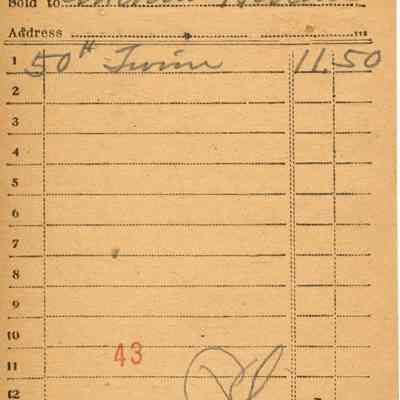 Sold to
Address
1 50# Twine 11.50
2
3
4
5
6
7
8
9
10
43
11
12